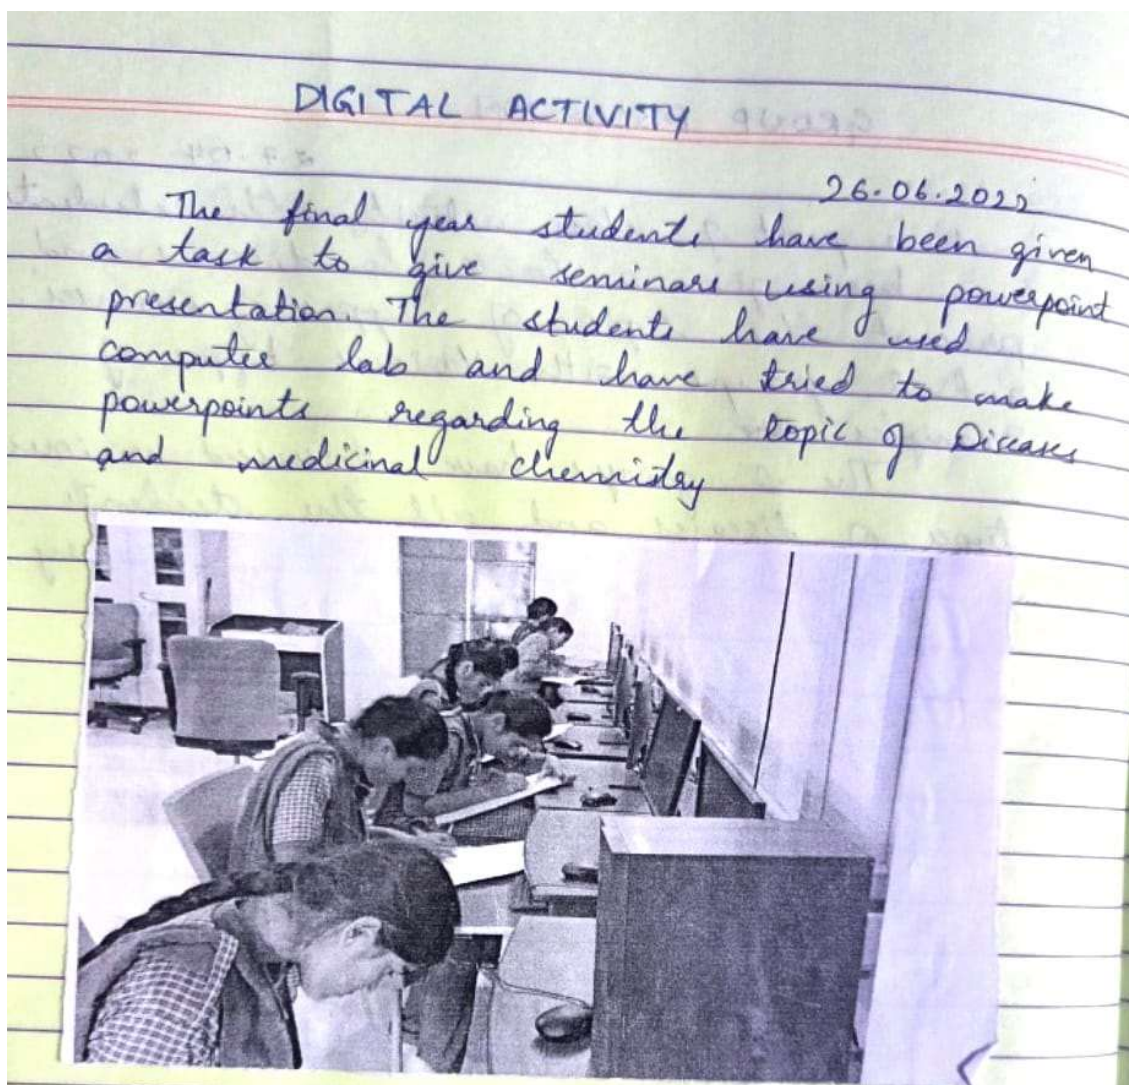 DIGITAL ACTIVITY
26.06.2022
The final year students have been given
a task to give seminars using powerpoint
presentation. The students have used
computer lab and have tried to make
powerpoints regarding the topic of Diseases
and medicinal chemistry